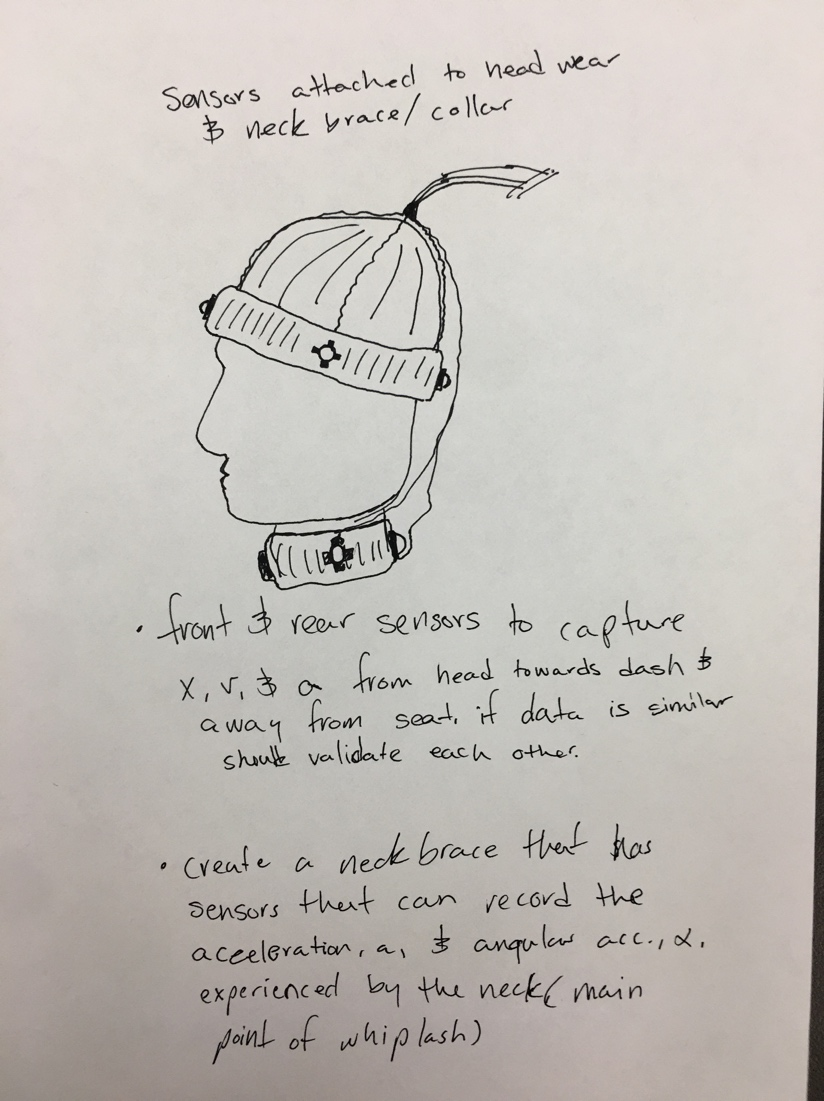 Sensors attached to head wear
& neck brace/ collar
• front & rear sensors to capture
x, v, & a from head towards dash &
away from seat. if data is similar
should validate each other.
• Create a neck brace that has
sensors that can record the
aceeleration, a, & angular acc., α,
experienced by the neck( main
point of whiplash)